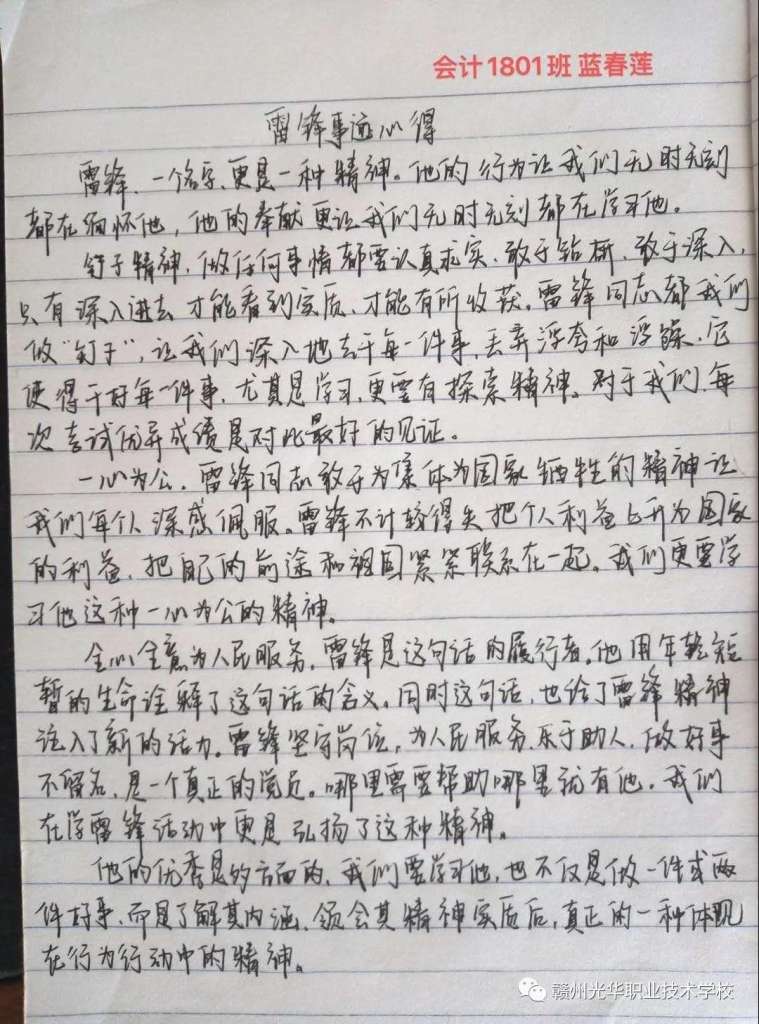 会计1801班 蓝春莲
雷锋事迹心得
雷锋、一个名字、更是一种精神。他的行为让我们无时无刻
都在缅怀他，他的奉献更让我们无时无刻都在学习他。
钉子精神，做任何事情都要认真求实、敢于钻研、敢于深入，
只有深入进去才能看到实质、才能有所收获。雷锋同志都我们
做“钉子”，让我们深入地去干每一件事、丢弃浮夸和浮躁、它
使得干好每一件事、尤其是学习、更要有探索精神。对于我们、每
次考试优异成绩是对此最好的见证。
一心为公、雷锋同志敢于为集体为国家牺牲的精神让
我们每个人深感佩服。雷锋不计较得失把个人利益上升为国家
的利益、把自己的前途和祖国紧紧联系在一起。我们更要学
习他这种一心为公的精神。
全心全意为人民服务，雷锋是这句话的履行者。他用年轻短
暂的生命诠释了这句话的含义。同时这句话，也给了雷锋精神
注入了新的活力。雷锋坚守岗位，为人民服务、乐于助人、做好事
不留名、是一个真正的党员。哪里需要帮助哪里就有他。我们
在学雷锋活动中更是弘扬了这种精神。
他的优秀是多方面的、我们要学习他，也不仅是做一件或两
件好事、而是了解其内涵、领会其精神实质后，真正的一种体现
在行为行动中的精神。
赣州光华职业技术学校